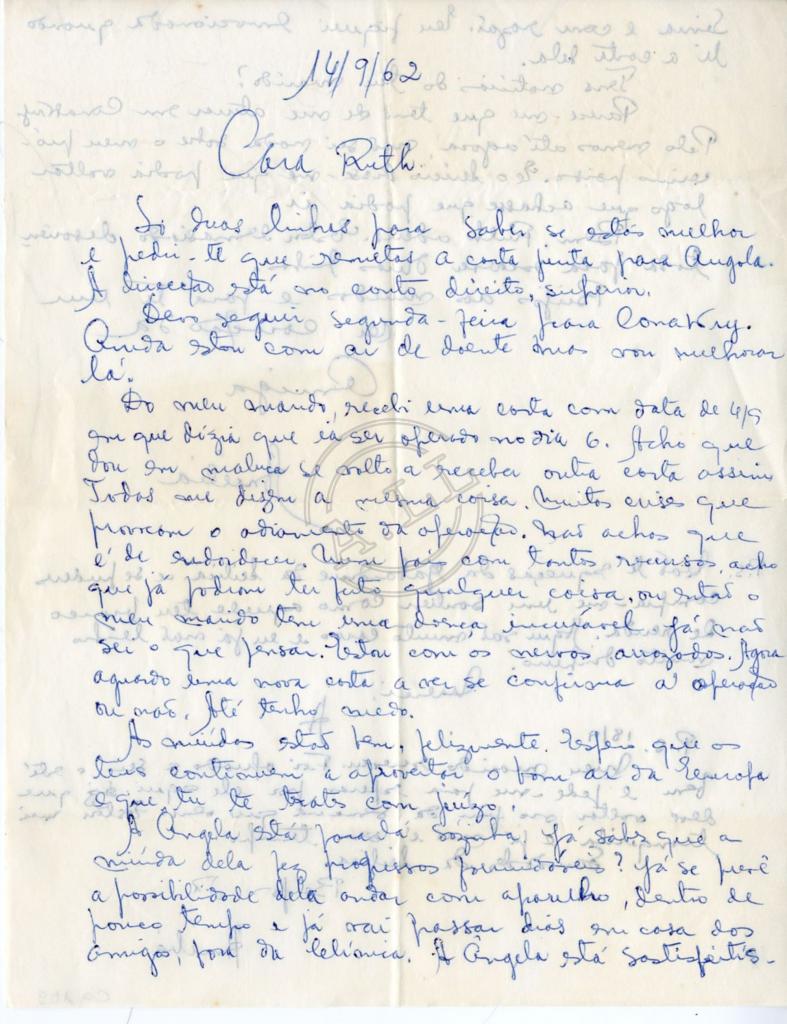 14/9/62
Cara Ruth.
Só duas linhas para saber se estás melhor
e pedir-te que remetas a carta junta para Angola.
A direcção está no canto direito, superior.
Devo seguir segunda-feira para Conakry.
Ainda estou com ar de doente mas vou melhorar
lá.
Do meu marido, recebi uma carta com data de 4/9
em que dizia que ia ser operado no dia 6. Acho que
dou em maluca se volto a receber outra carta assim
Todas me dizem a mesma coisa. Muitas crises que
provocam o adiamento da operação. Não achas que
é de endoidecer. Num país com tantos recursos, acho
que já podiam ter feito qualquer coisa, ou então o
meu marido tem uma doença incurável. Já não
sei o que pensar. Estou com os nervos arrazados. Agora
aguardo uma nova carta a ver se confirma a operação
ou não. Até tenho medo.
As miúdas estão bem, felizmente. Espero que os
teus continuem a aproveitar o bom ar da Europa
e que tu te trates com juízo.
A Ângela está para lá sozinha. Já sabes que a
miúda dela fez progressos formidáveis? Já se prevê
a possibilidade dela andar com aparelho, dentro de
pouco tempo e já vai passar dias em casa dos
amigos, fora da clínica. A Ângela está satisfeitís-